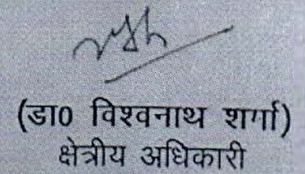 (डा0 विश्वनाथ शर्मा)
क्षेत्रीय अधिकारी